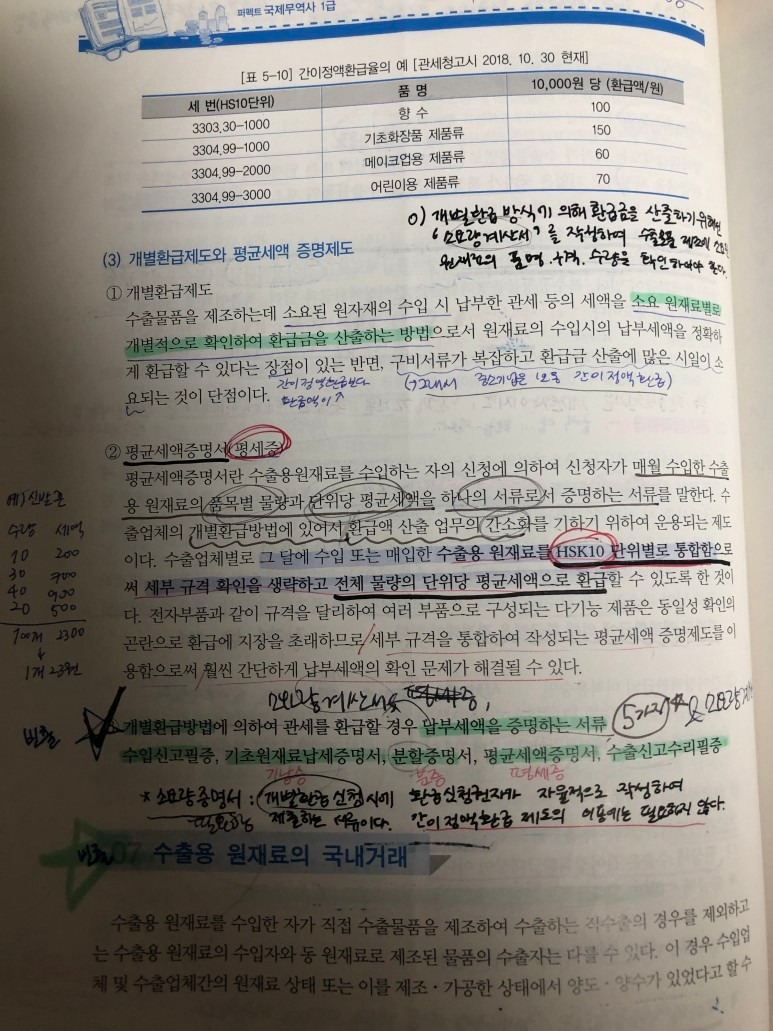 퍼펙트 국제무역사 1급
[표 5-10] 간이정액환급율의 예 [관세청고시 2018. 10. 30 현재]
세 번(HS10단위) 품 명 10,000원 당 (환급액/원)
3303.30-1000 향 수 100
3304.99-1000 기초화장품 제품류 150
3304.99-2000 메이크업용 제품류 60
3304.99-3000 어린이용 제품류 70
0) 개별환급 방식기 의해 환급금을 산출하기 위해선
'소요량계산서'를 작성하여 수출물품 제조에 소요된
원재료의 품명, 규격, 수량을 확인하여야 한다.
(3) 개별환급제도와 평균세액 증명제도
① 개별환급제도
수출물품을 제조하는데 소요된 원자재의 수입 시 납부한 관세 등의 세액을 소요 원재료별로
개별적으로 확인하여 환급금을 산출하는 방법으로서 원재료의 수입시의 납부세액을 정확하
게 환급할 수 있다는 장점이 있는 반면, 구비서류가 복잡하고 환급금 산출에 많은 시일이 소
요되는 것이 단점이다.
간이정액환급보다
환급액이 ↑
(→그래서 중소기업은 보통 간이정액환급)
② 평균세액증명서(평세증)
평균세액증명서란 수출용원재료를 수입하는 자의 신청에 의하여 신청자가 매월 수입한 수출
용 원재료의 품목별 물량과 단위당 평균세액을 하나의 서류로서 증명하는 서류를 말한다. 수
출업체의 개별환급방법에 있어서 환급액 산출 업무의 간소화를 기하기 위하여 운용되는 제도
이다. 수출업체별로 그 달에 수입 또는 매입한 수출용 원재료를 HSK10 단위별로 통합함으로
써 세부 규격 확인을 생략하고 전체 물량의 단위당 평균세액으로 환급할 수 있도록 한 것이
다. 전자부품과 같이 규격을 달리하여 여러 부품으로 구성되는 다기능 제품은 동일성 확인의
곤란으로 환급에 지장을 초래하므로/세부 규격을 통합하여 작성되는 평균세액 증명제도를 이
용함으로써 훨씬 간단하게 납부세액의 확인 문제가 해결될 수 있다.
예) 신발끈
수량 세액
10 200
30 700
40 900
20 500
100개 2300
↓
1개 23원
소요량계산서
빈출
개별환급방법에 의하여 관세를 환급할 경우 납부세액을 증명하는 서류
5가지
수입신고필증, 기초원재료납세증명서, 분할증명서, 평균세액증명서, 수출신고수리필증
기납증 분증 평세증
* 소요량증명서 : 개별환급 신청시에 환급신청권자가 자율적으로 작성하여
필요함 제출하는 서류이다. 간이정액환급 제도의 이용에는 필요하지 않다.
빈출
07 수출용 원재료의 국내거래
수출용 원재료를 수입한 자가 직접 수출물품을 제조하여 수출하는 직수출의 경우를 제외하고
는 수출용 원재료의 수입자와 동 원재료로 제조된 물품의 수출자는 다를 수 있다. 이 경우 수입업
체 및 수출업체간의 원재료 상태 또는 이를 제조·가공한 상태에서 양도·양수가 있었다고 할 수